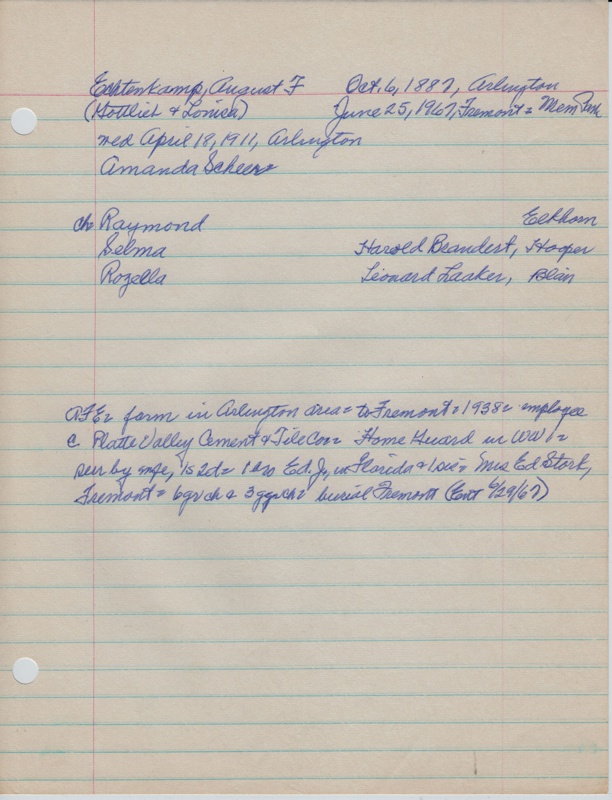 Echtenkamp, August F Oct. 6, 1887, Arlington
(Gottlieb & Louisa) June 25, 1967, Fremont = Mem Park
med April 18, 1911, Arlington
Amanda Scheer
ch Raymond Elkhorn
Selma Harold Brandert, Hooper
Rozella Leonard Laaker, Blair
AFE= farm in Arlington area = to Fremont = 1938 = employee
c Platte Valley Cement & Tile Co = Home Guard in WW1 =
sur by wife, 1s 2d = 1 bro Ed. Jr, in Florida & 1 sis = Mrs Ed Stork,
Fremont = 6 gr ch & 3 ggr ch = burial Fremont (Ent 6/29/67)